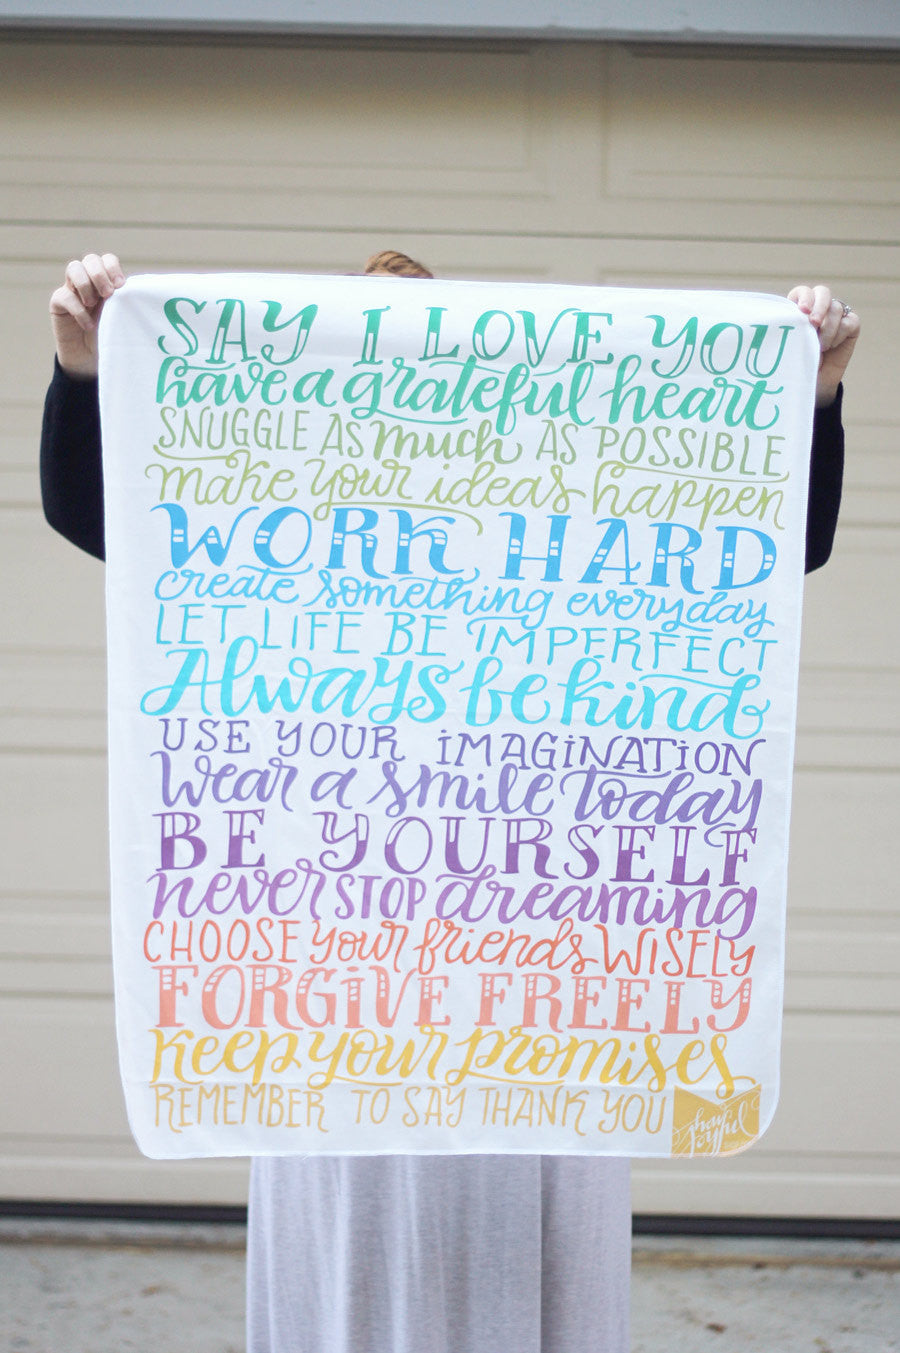 SAY I LOVE YOU
have a grateful heart
SNUGGLE AS much AS POSSIBLE
make your ideas happen
WORK HARD
create something everyday
LET LIFE BE IMPERFECT
Always be kind
USE YOUR iMAGiNATiON
wear a smile today
BE YOURSELF
never STOP dreaming
CHOOSE your friends WISELY
FORGiVE FREELY
keep your promises
REMEMBER TO SAY THANK YOU